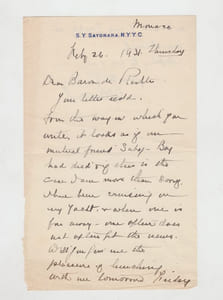 Monaco
S.Y. SAYONARA. N.Y.Y.C.
Feby 26. 1931. Thursday
Dear Baron de
Your letter
from the way in which you
write, it looks as if our
mutual friend
had died if this is the
case I am more than sorry.
I have been cruising on
my Yacht, & when one is
far away - one often does
not often get the news.
Will you give me the
pleasure of lunching
with me tomorrow Friday